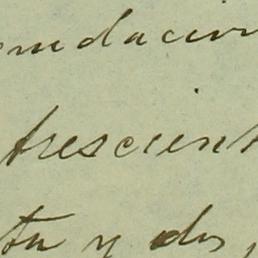 mdacion
trescient
ta y dos